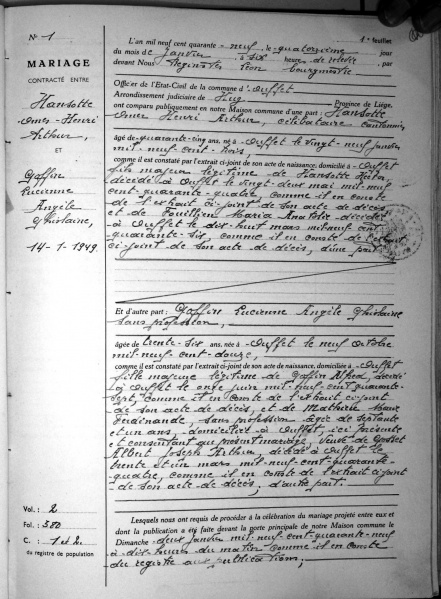 N° 1
MARIAGE
CONTRACTÉ ENTRE
Hansotte
Omer-Henri
Arthur,
ET
Gaffin
Lucienne
Angèle
Ghislaine,
14-1-1949.
Vol.: 2
Fol.: 380
C.: 1 et 2
du registre de population
1er feuillet
L'an mil neuf cent quarante-neuf le quatorzième jour
du mois de janvier à six heures de relevée
devant Nous Léon bourgmestre, par
Officier de l'Etat-Civil de la commune d'Ouffet
Arrondissement judiciaire de Huy Province de Liége,
ont comparu publiquement en notre Maison commune d'une part: Hansotte
Omer Henri Arthur, célibataire, cantonnier,
âgé de quarante-cinq ans, né à Ouffet le vingt-neuf janvier
mil-neuf-cent-trois,
comme il est constaté par l'extrait ci-joint de son acte de naissance, domicilié à Ouffet
fils majeur légitime de Hansotte
décédé à Ouffet le vingt-deux mai mil-neuf
cent-quarante-quatre, comme il en conste
de l'extrait ci-joint de son acte de décès,
et de Maria décédée
à Ouffet le dix-huit mars mil-neuf cent
quarante-six, comme il en conste de l'extrait
ci-joint de son acte de décès, d'une part.
Et d'autre part: Gaffin Lucienne Angèle Ghislaine
sans profession,
âgée de trente-six ans, née à Ouffet le neuf octobre
mil-neuf-cent-douze,
comme il est constaté par l'extrait ci-joint de son acte de naissance, domiciliée à Ouffet
fille majeure légitime de Gaffin Alfred, décédé
à Ouffet le onze juin mil-neuf-cent quarante-
sept, comme il en conste de l'extrait ci-joint
de son acte de décès, et de Mathieu Marie
Ferdinande, sans profession âgée de septante
et un ans, domiciliée à Ouffet, ici présente
et consentant au présent mariage, veuve de Gosset
Albert Joseph Arthur, décédé à Ouffet le
trente et un mars mil-neuf-cent-quarante-
quatre, comme il en conste de l'extrait ci-joint
de son acte de décès, d'autre part.
Lesquels nous ont requis de procéder à la célébration du mariage projeté entre eux et
dont la publication a été faite devant la porte principale de notre Maison commune le
Dimanche deux janvier mil-neuf-cent-quarante-neuf
à dix-heures du matin comme il en conste
du registre aux publications,